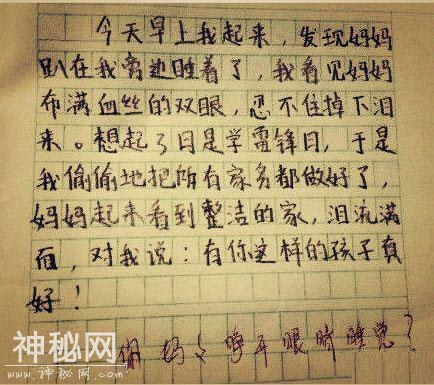 今天早上我起来，发现妈妈
趴在我旁边睡着了，我看见妈妈
布满血丝的双眼，忍不住掉下泪
来。想起了日是学雷锋日，于是
我偷偷地把所有家务都做好了，
妈妈起来看到整洁的家，泪流满
面，对我说：有你这样的孩子真
好！
你妈妈睁开眼睛睡觉？
神秘网
www.神秘网.com